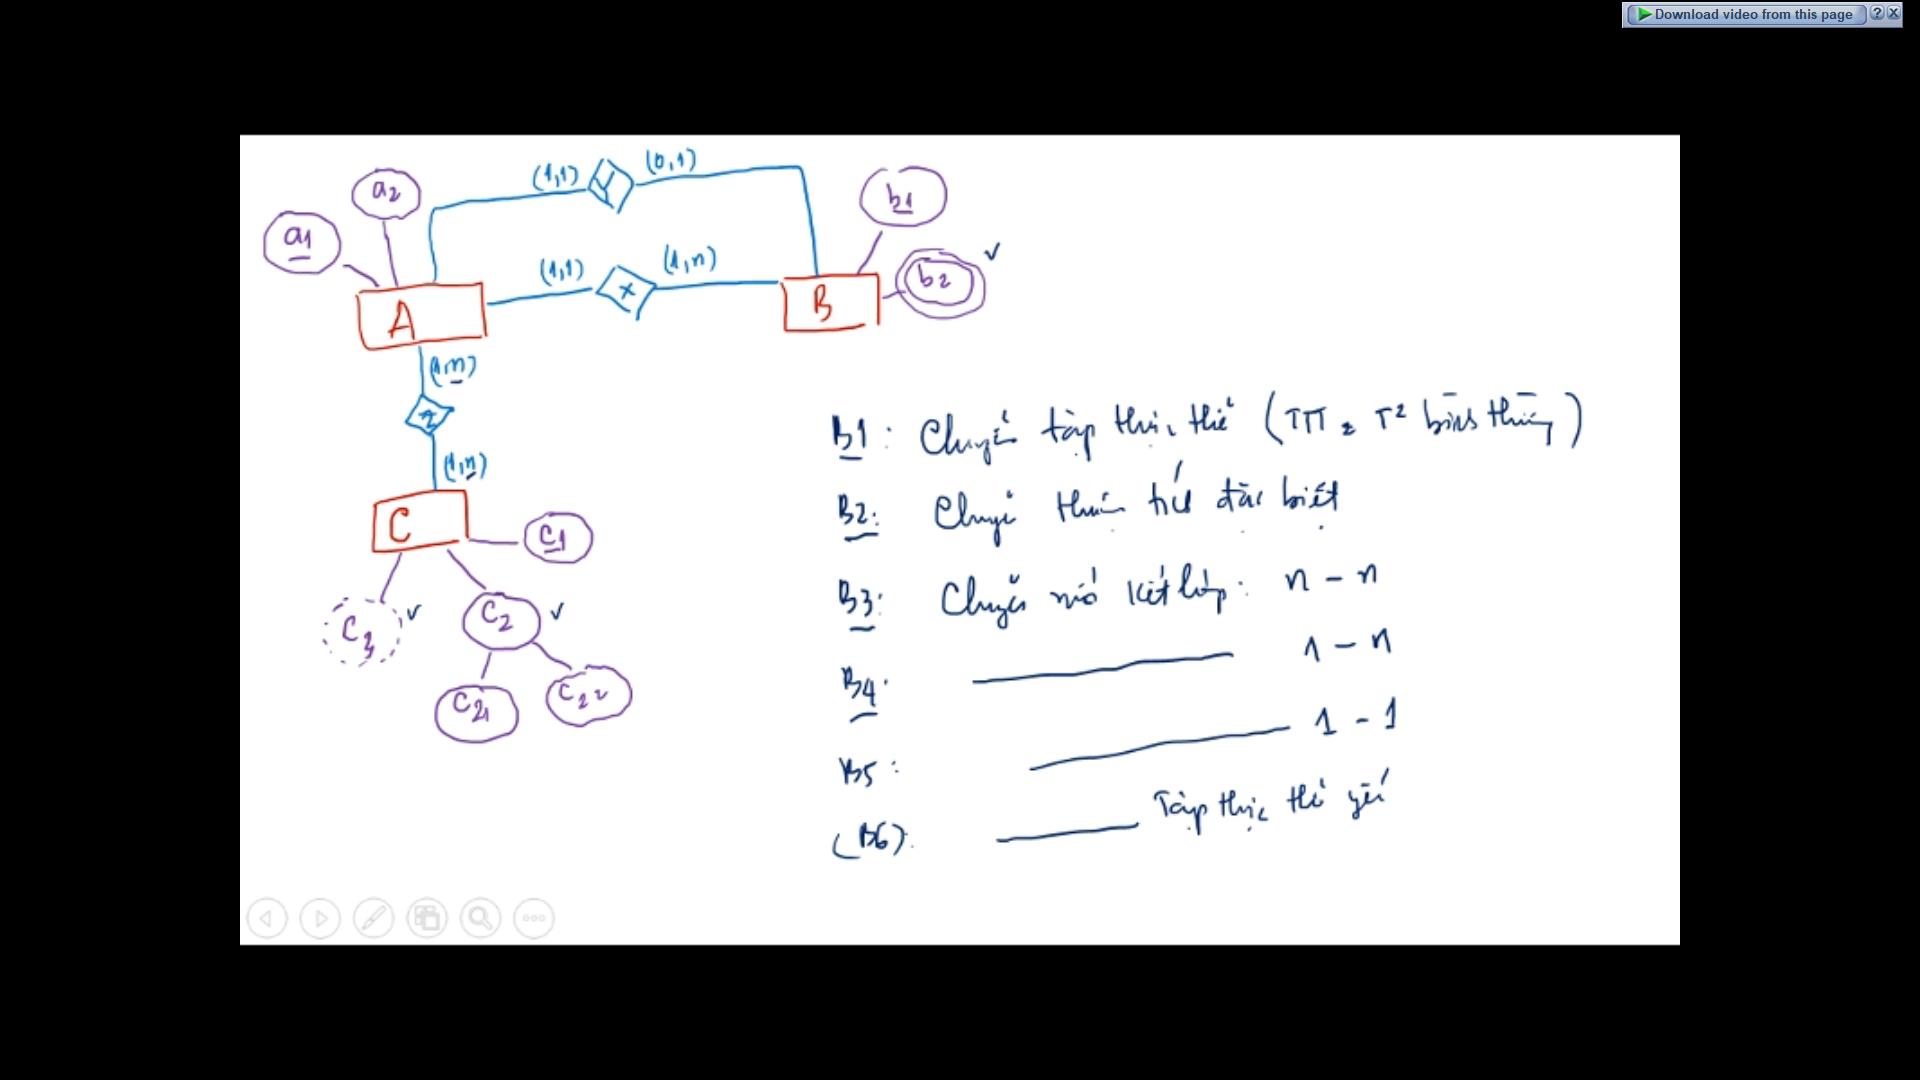 Download video from this page
(1,1)
Y
(0,1)
a2
a1
b1
(1,1)
X
(1,n)
b2
A
B
(1,n)
z
(1,n)
C
c1
C3
C2
C21
C22
B1: Chuyển tập thực thể (TTT 2 T² bình thường)
B2: Chuyển thuộc tính đặc biệt
B3: Chuyển mối kết hợp: n - n
B4: 1 - n
B5: 1 - 1
(B6). Tập thực thể yếu